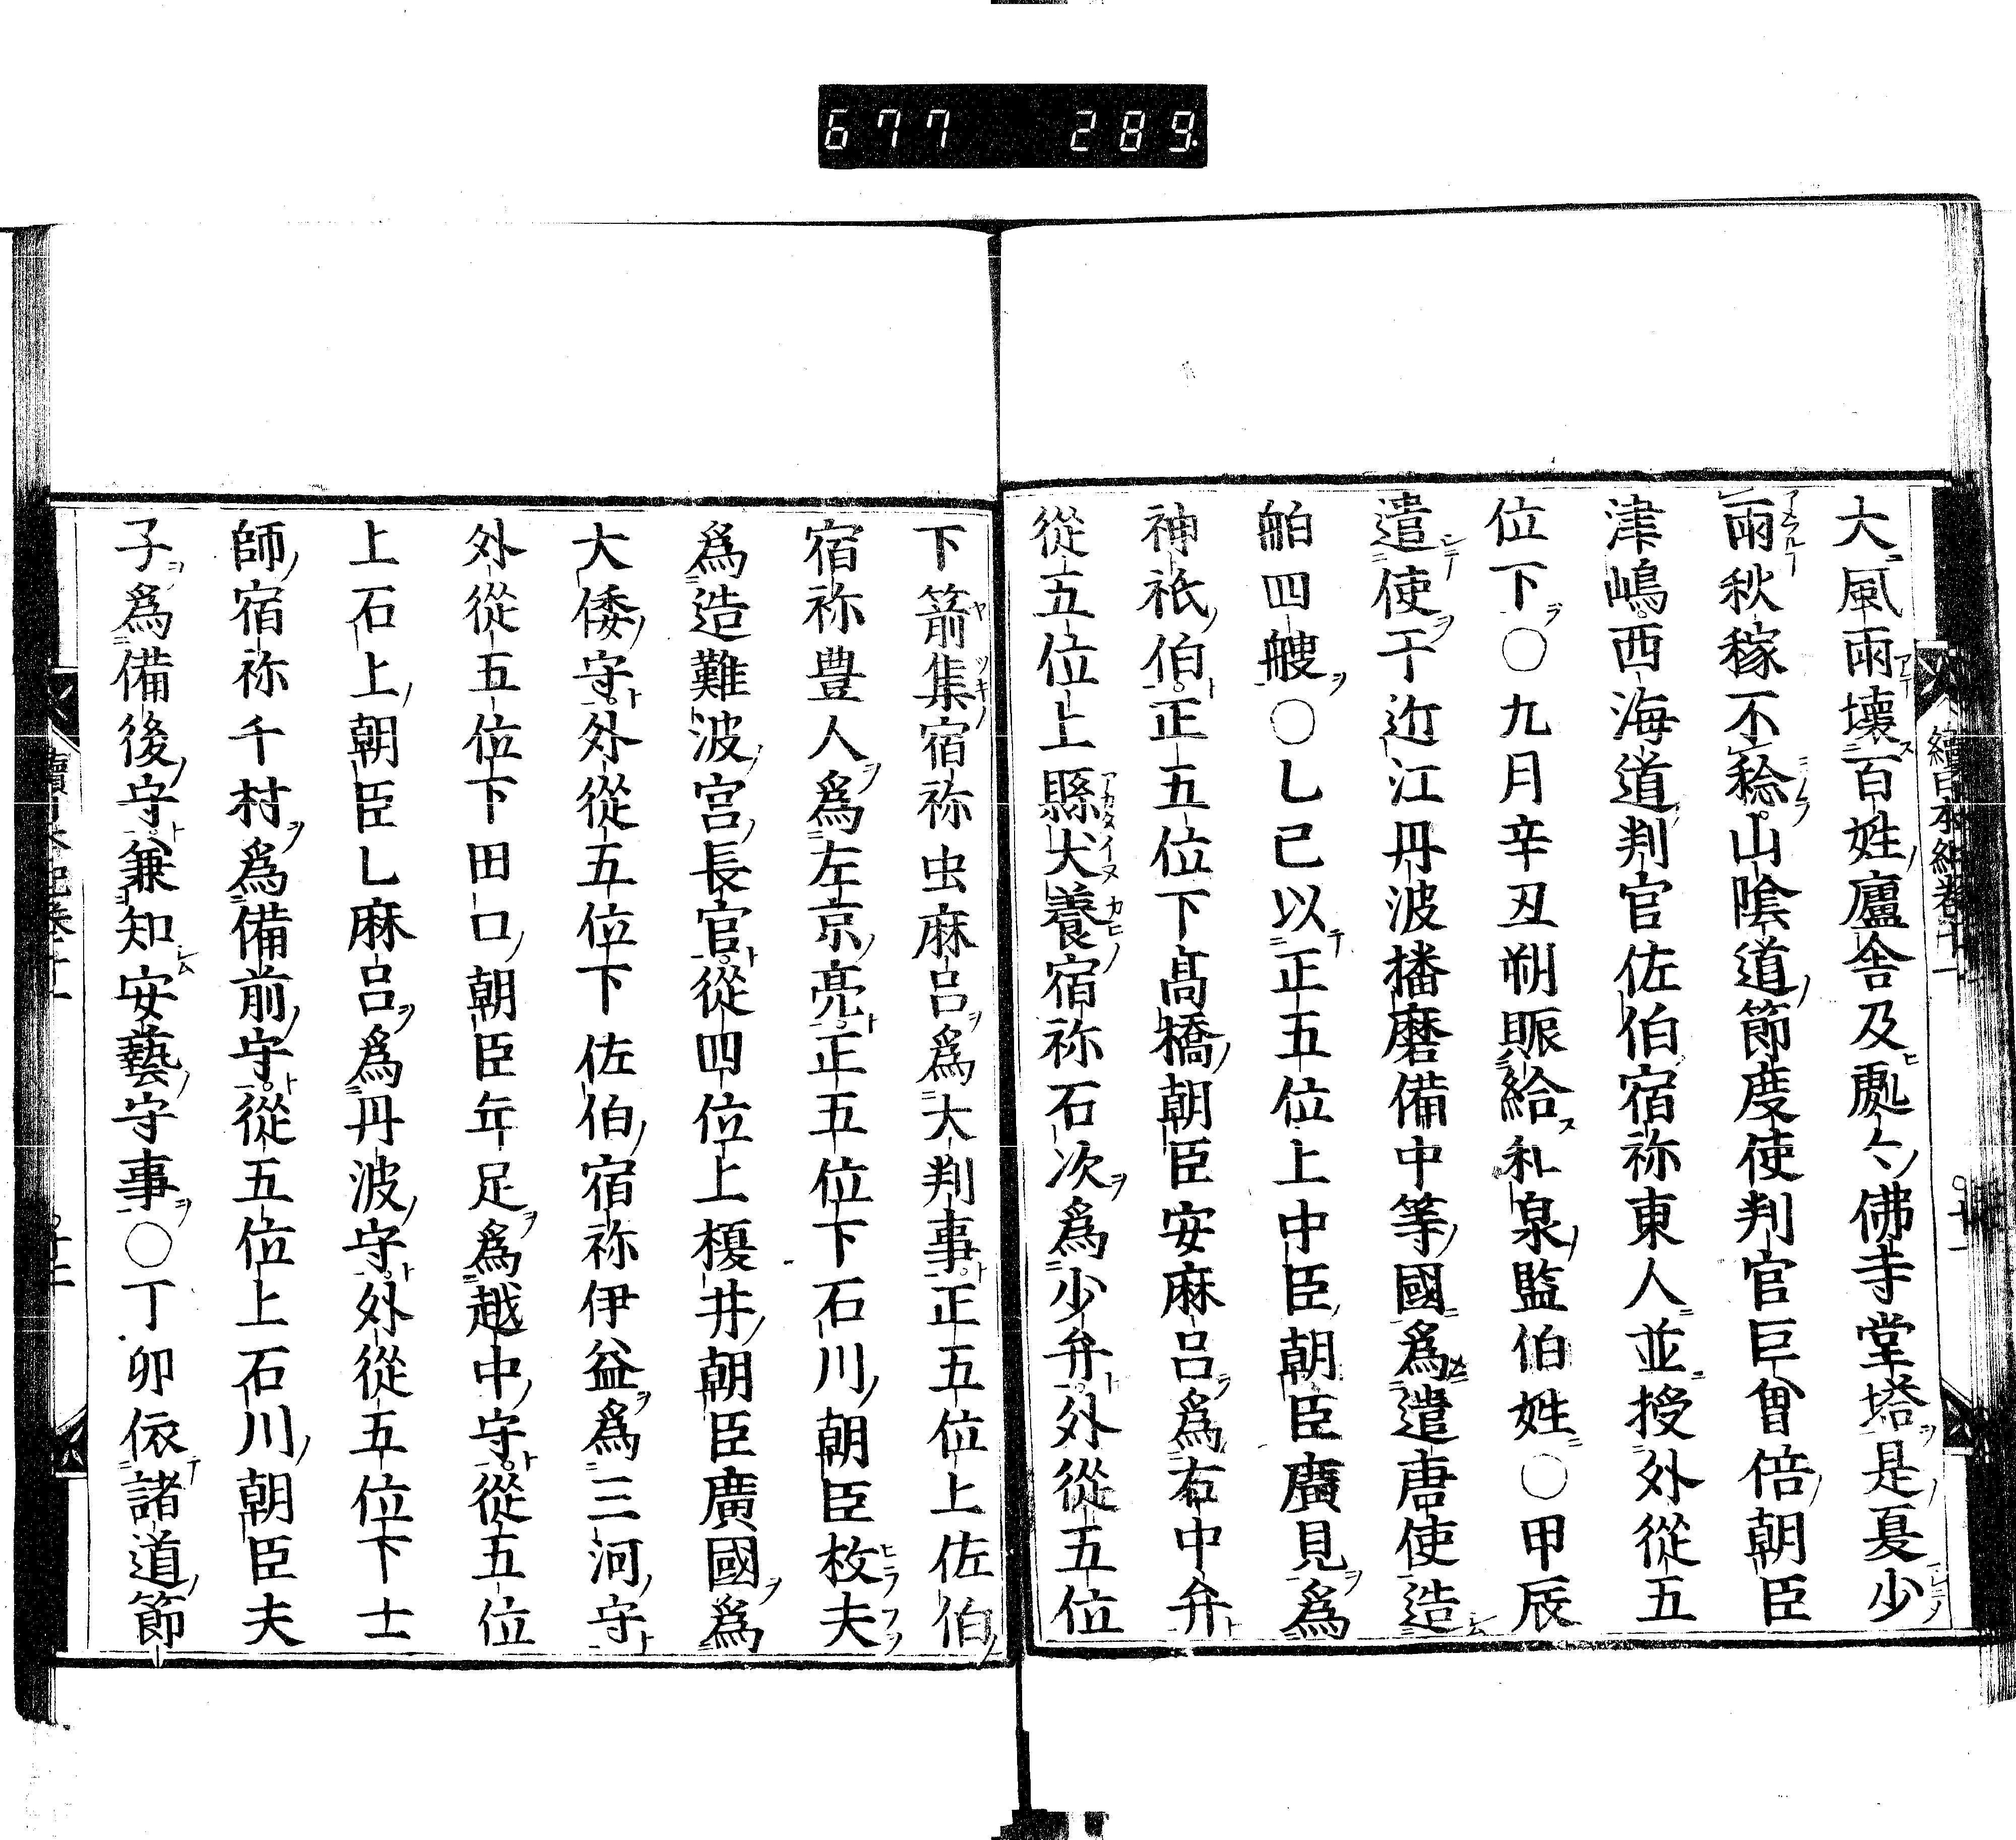 677 289
續日本紀卷十一
大風雨壞百姓廬舍及處々佛寺堂塔是夏少
雨秋稼不稔山陰道節度使判官巨曾倍朝臣
津嶋西海道判官佐伯宿祢東人並授外從五
位下○九月辛丑朔賑給和泉監伯姓○甲辰
遣使于近江丹波播磨備中等國爲遣唐使造
舶四艘○乙已以正五位上中臣朝臣廣見爲
神祇伯正五位下髙橋朝臣安麻呂爲右中弁
從五位上縣犬養宿祢石次爲少弁外從五位
下箭集宿祢虫麻呂爲大判事正五位上佐伯
宿祢豊人爲左京亮正五位下石川朝臣枚夫
爲造難波宮長官從四位上榎井朝臣廣國爲
大倭守外從五位下佐伯宿祢伊益爲三河守
外從五位下田口朝臣年足爲越中守從五位
上石上朝臣乙麻呂爲丹波守外從五位下士
師宿祢千村爲備前守從五位上石川朝臣夫
子爲備後守兼知安藝守事○丁卯依諸道節